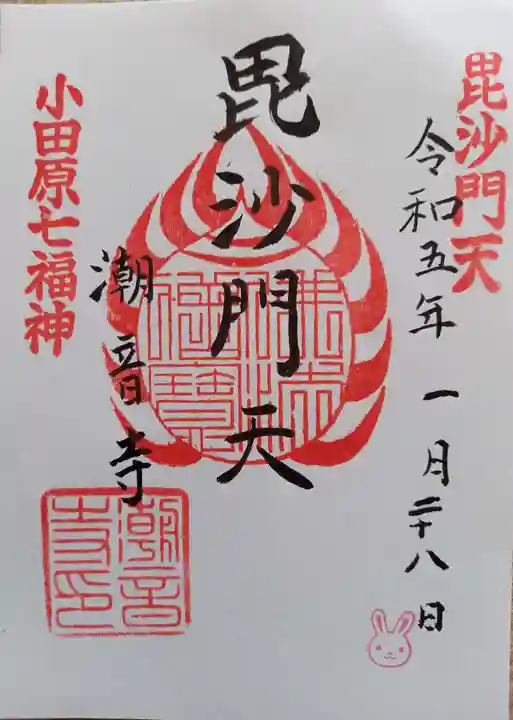 毘沙門天
令和五年一月二十八日
毘沙門天
潮音寺
小田原七福神
潮音寺印